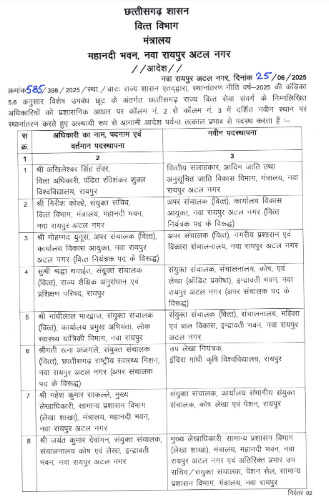 छत्तीसगढ़ शासन
वित्त विभाग
मंत्रालय
महानदी भवन, नवा रायपुर अटल नगर
//आदेश//
नवा रायपुर अटल नगर, दिनांक 25/06/2025
क्रमांक 585/398/2025/स्था./चार: राज्य शासन एतद्द्वारा, स्थानांतरण नीति वर्ष-2025 की कंडिका
5.6 अनुसार विशेष उपबंध छूट के अंतर्गत छत्तीसगढ़ राज्य वित्त सेवा संवर्ग के निम्नलिखित
अधिकारियों को प्रशासनिक आधार पर कॉलम नं. 2 से कॉलम नं. 3 में दर्शित नवीन स्थान पर
स्थानांतरण करते हुए अस्थायी रूप से आगामी आदेश पर्यन्त तत्काल प्रभाव से पदस्थ करता है :–
स क्र. | अधिकारी का नाम, पदनाम एवं वर्तमान पदस्थापना | नवीन पदस्थापना
1 | 2 | 3
1 श्री अखिलेश्वर सिंह तंवर, वित्तीय सलाहकार, आदिम जाति तथा
वित्त अधिकारी, पंडित रविशंकर शुक्ल अनुसूचित जाति विकास विभाग, मंत्रालय, नवा
विश्वविद्यालय, रायपुर रायपुर अटल नगर
2 श्री विरीश कोल्हे, संयुक्त सचिव, अपर संचालक (वित्त), कार्यालय विकास
वित्त विभाग, मंत्रालय, महानदी भवन, आयुक्त, नवा रायपुर अटल नगर (वित्त
नवा रायपुर अटल नगर नियंत्रक पद के विरूद्ध)
3 श्री मोहम्मद युनुस, अपर संचालक (वित्त), अपर संचालक (वित्त), नगरीय प्रशासन एवं
कार्यालय विकास आयुक्त, नवा रायपुर विकास संचालनालय, नवा रायपुर अटल नगर
अटल नगर (वित्त नियंत्रक पद के विरूद्ध)
4 सुश्री श्रद्धा संयुक्त संचालक संयुक्त संचालक, संचालनालय, कोष, एवं
(वित्त), राज्य शैक्षिक अनुसंधान एवं लेखा (ऑडिट प्रकोष्ठ), इन्द्रावती भवन, नवा
प्रशिक्षण परिषद, रायपुर रायपुर अटल नगर (अपर संचालक पद के
विरूद्ध)
5 श्री गांधीलाल भारद्वाज, संयुक्त संचालक संयुक्त संचालक (वित्त), संचालनालय, महिला
(वित्त), कार्यालय प्रमुख अभियंता, लोक एवं बाल विकास, इन्द्रावती भवन, नवा रायपुर
स्वास्थ्य यांत्रिकी विभाग, नवा रायपुर अटल नगर
6 श्रीमती रत्ना अजगले, संयुक्त संचालक उप लेखा नियंत्रक
(वित्त), छत्तीसगढ़ राष्ट्रीय स्वास्थ्य मिशन, इंदिरा गांधी कृषि विश्वविद्यालय, रायपुर
नवा रायपुर अटल नगर (अपर संचालक
पद के विरूद्ध)
7 श्री महेश कुमार साकल्ले, मुख्य संयुक्त संचालक, कार्यालय संभागीय संयुक्त
लेखाधिकारी, सामान्य प्रशासन विभाग संचालक, कोष लेखा एवं पेंशन, रायपुर
(लेखा शाखा), मंत्रालय, महानदी भवन,
नवा रायपुर अटल नगर
8 श्री जयंत कुमार देवांगन, संयुक्त संचालक, मुख्य लेखाधिकारी, सामान्य प्रशासन विभाग
संचालनालय कोष एवं लेखा, इन्द्रावती (लेखा शाखा), मंत्रालय, महानदी भवन, नवा
भवन, नवा रायपुर अटल नगर रायपुर अटल नगर एवं अतिरिक्त प्रभार उप
सचिव/संयुक्त संचालक, पेंशन सेल, सामान्य
प्रशासन विभाग, मंत्रालय, नवा रायपुर
निरंतर 02